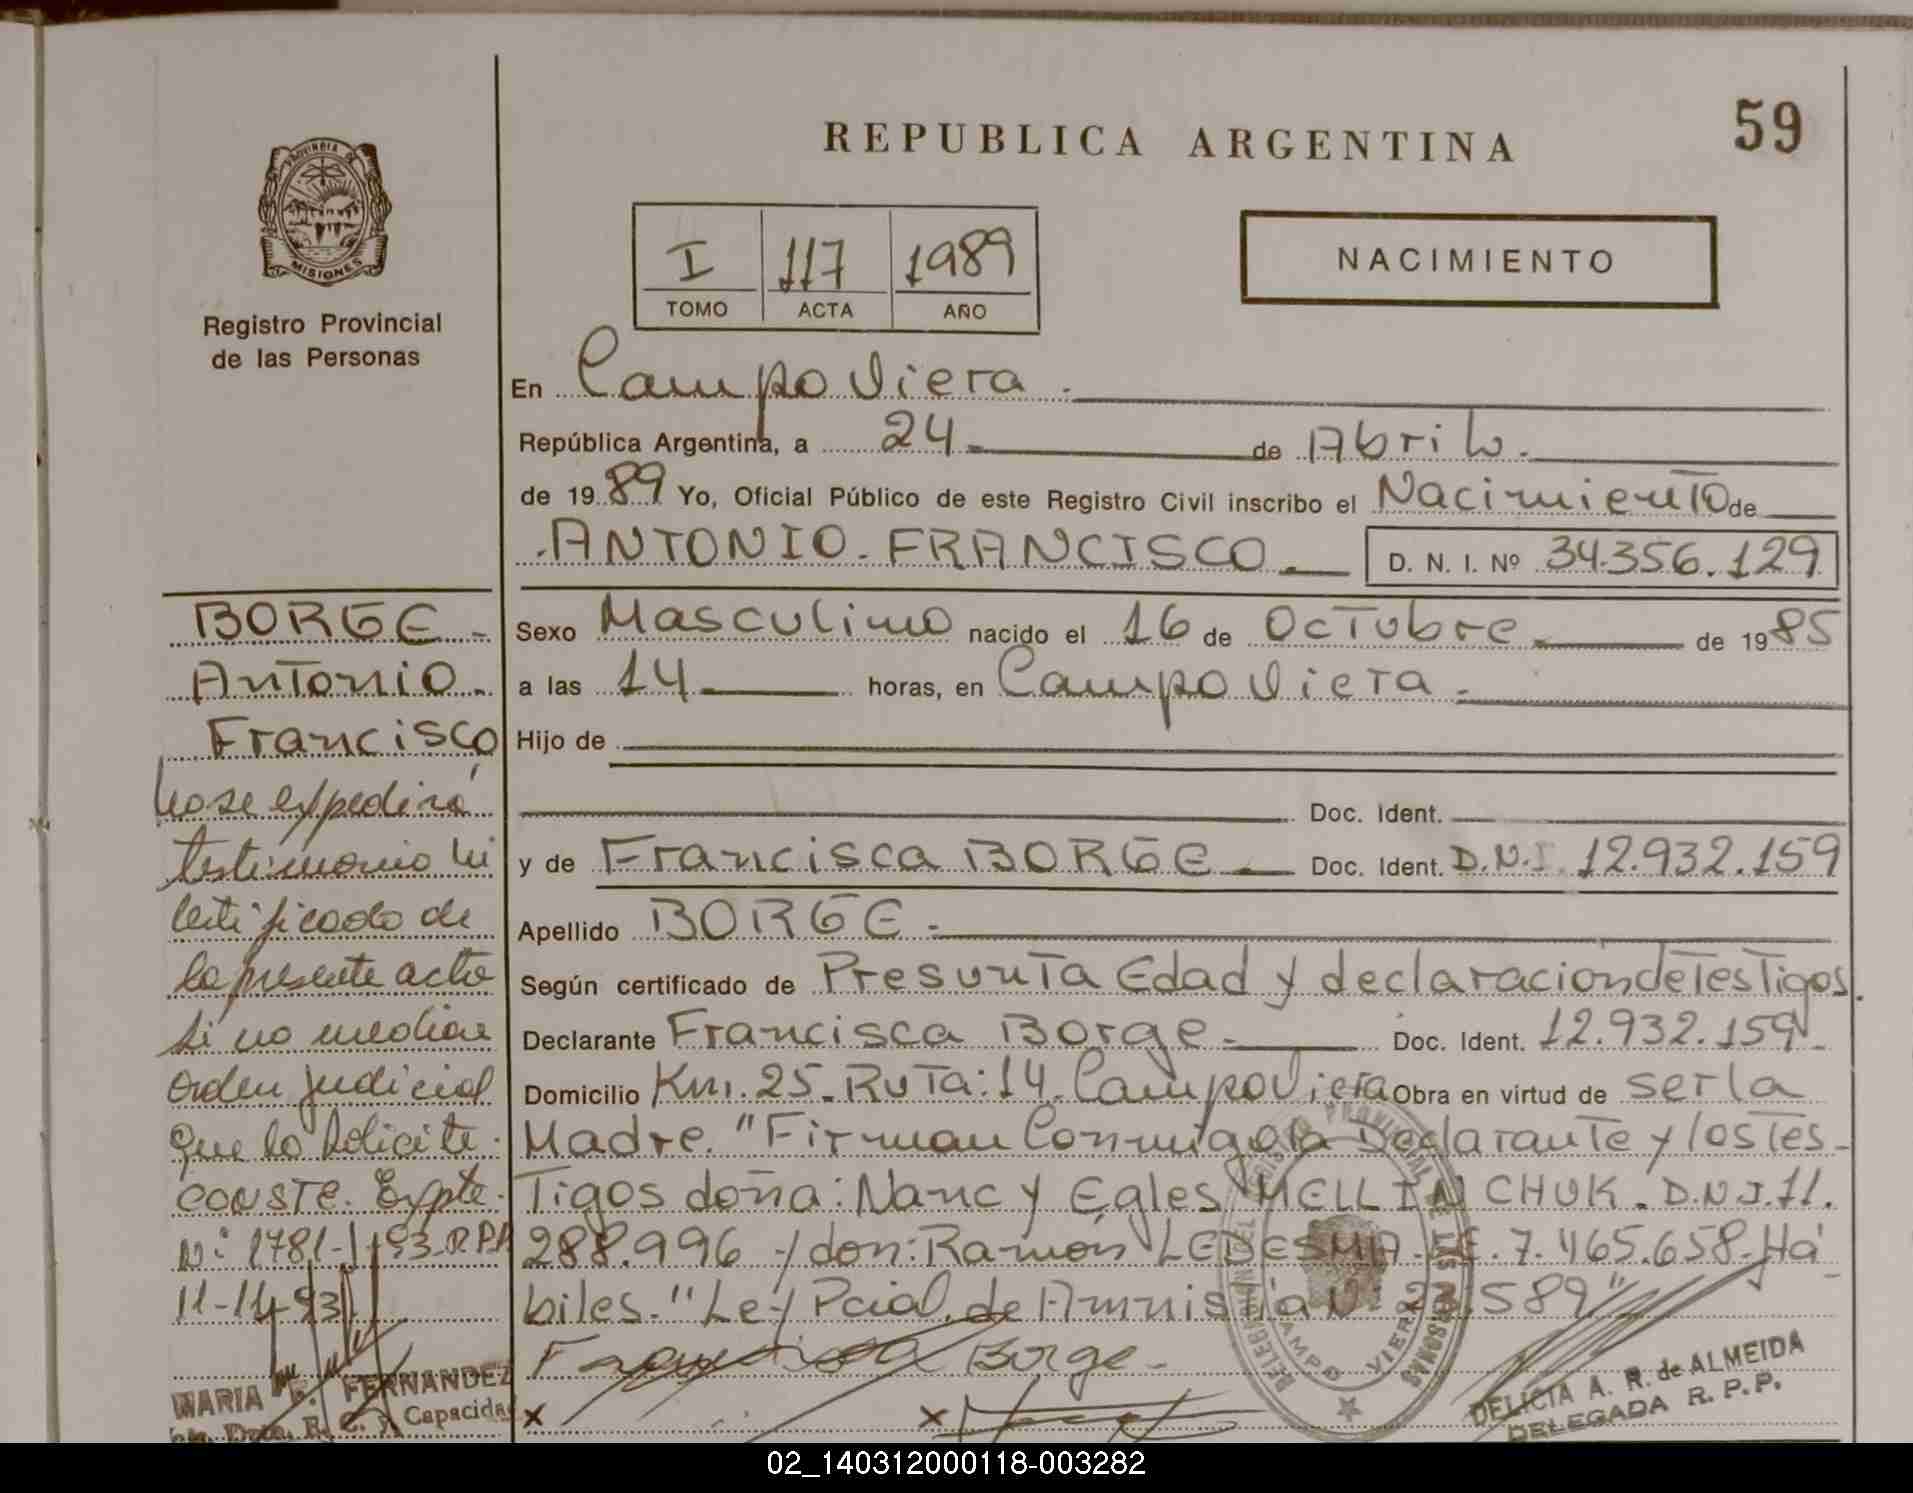 REPUBLICA ARGENTINA
59
PROVINCIA DE
MISIONES
Registro Provincial
de las Personas
I 117 1989
TOMO ACTA AÑO
NACIMIENTO
En Campo Viera.
República Argentina, a 24 de Abril.
de 1989 Yo, Oficial Público de este Registro Civil inscribo el Nacimiento de
ANTONIO FRANCISCO. D. N. I. Nº 34.356.129
Sexo Masculino nacido el 16 de Octubre de 1985
a las 14 horas, en Campo Viera.
Hijo de
Doc. Ident.
y de Francisca BORGE Doc. Ident. D.N.I. 12.932.159
Apellido BORGE.
Según certificado de Presunta Edad y declaración de Testigos.
Declarante Francisca Borge. Doc. Ident. 12.932.159
Domicilio Km. 25. Ruta: 14. Campo Viera Obra en virtud de ser la
Madre. "Firman Conmigo la Declarante y los Tes-
Tigos doña: Nancy Egles MELLINCHUK. D.N.I. 11.
288.996 y don: Ramón LEDESMA. L.E. 7.465.658. Há-
biles. "Ley Pcial. de Amnistía Nº 23.589"
Francisca Borge.
BORGE.
Antonio.
Francisco
No se expedirá
testimonio ni
certificado de
la presente acta
si no mediare
orden judicial
que lo solicite.
CONSTE. Expte.
Nº 1781-J-93-RPP
11-11-93
MARIA FERNANDEZ
R. C. y Capacidad
DELEGACION DEL REGISTRO PROVINCIAL DE LAS PERSONAS
CAMPO VIERA
DELICIA A. R. de ALMEIDA
DELEGADA R. P. P.
02_140312000118-003282